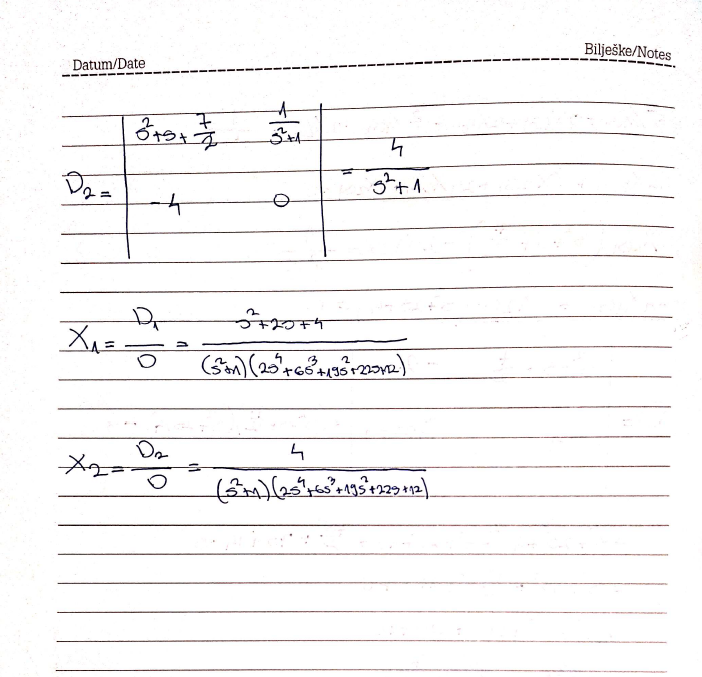 Datum/Date Bilješke/Notes
D₂ = | s²+s+7/2 1/(s²+1) |
| -4 0 | = 4/(s²+1)
X₁ = D₁/D = (s²+2s+4)/((s²+1)(2s⁴+6s³+19s²+22s+12))
X₂ = D₂/D = 4/((s²+1)(2s⁴+6s³+19s²+22s+12))